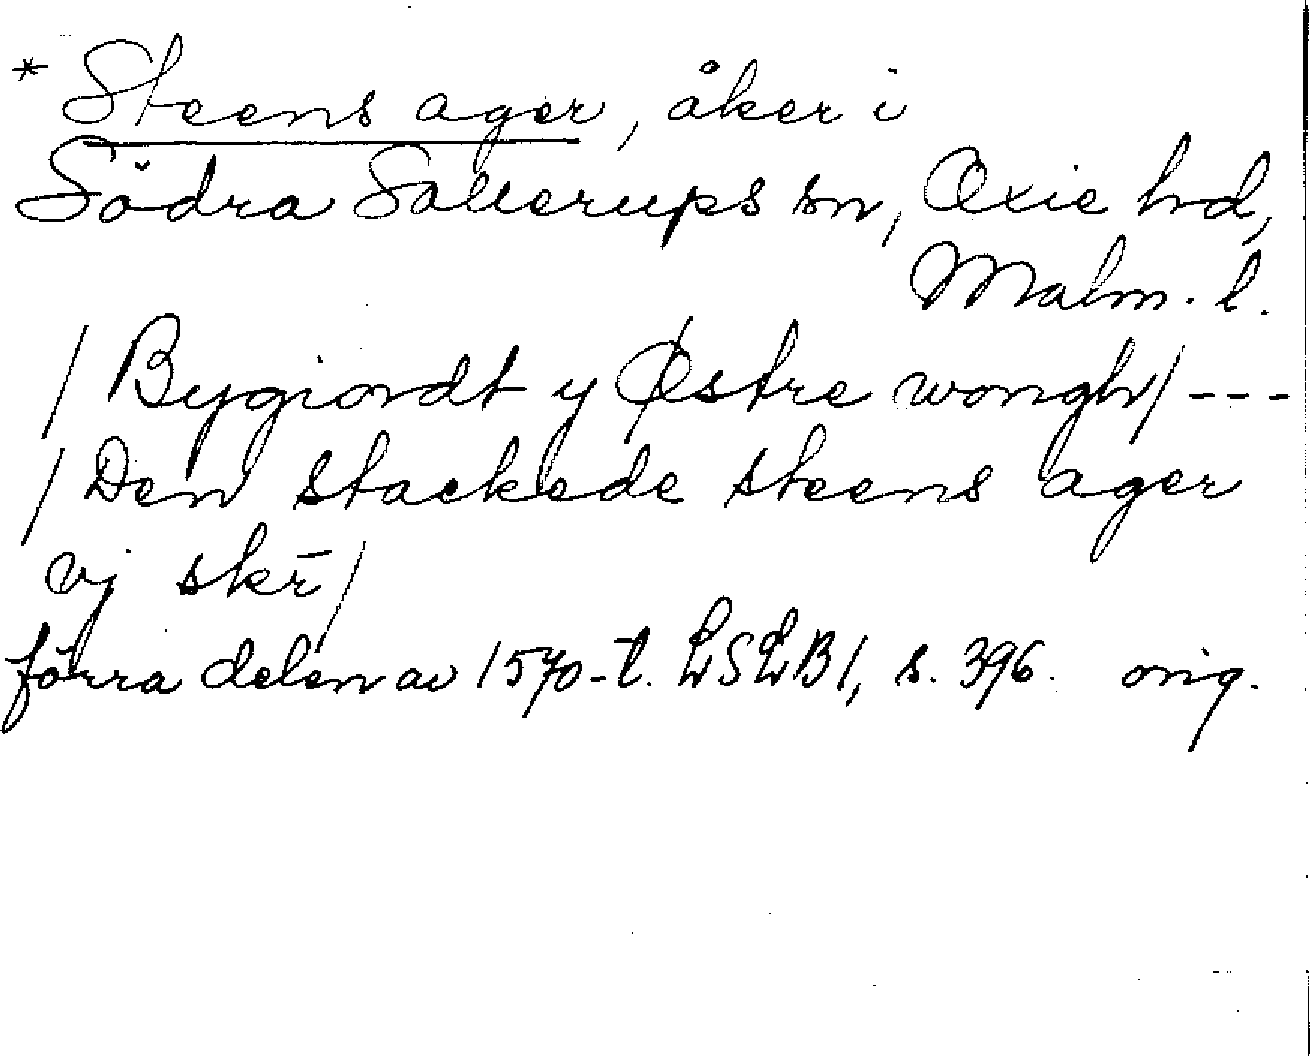 * Steens ager, åker i
Södra Sallerups sn, Oxie hd,
Malm. l.
/ Bygiordt y Østre wongh / ---
/ Den stackede steens ager
vj skr̄ /
förra delen av 1570-t. LSLB1, s. 396. orig.